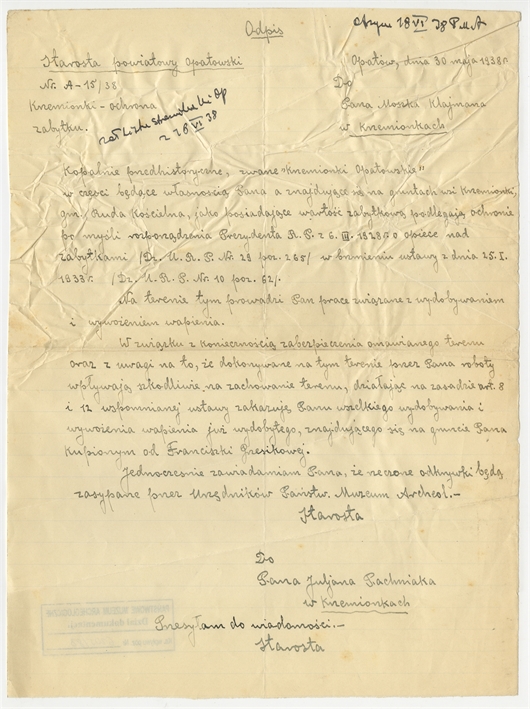 Odpis
Otrzym 18 VI 38 P.M.A
Starosta powiatowy Opatowski
Nr. A-15/38
Krzemionki - ochrona
zabytku.
z 28 VI 38
Opatów, dnia 30 maja 1938r.
Do
Pana Moszka Klajmana
w Krzemionkach
Kopalnie przedhistoryczne, zwane "Krzemionki Opatowskie"
w części będące własnością Pana a znajdujące się na gruntach wsi Krzemionki,
gm. Ruda Kościelna, jako posiadające wartość zabytkową podlegają ochronie
po myśli rozporządzenia Prezydenta R.P. z 6. III. 1928r. o opiece nad
zabytkami /Dz. U. R. P. Nr. 29 poz. 265/ w brzmieniu ustawy z dnia 25. I.
1933r. /Dz. U. R. P. Nr. 10 poz. 62/.
Na terenie tym prowadzi Pan prace związane z wydobywaniem
i wywożeniem wapienia.
W związku z koniecznością zabezpieczenia omawianego terenu
oraz z uwagi na to, że dokonywane na tym terenie przez Pana roboty
wpływają szkodliwie na zachowanie terenu, działając na zasadzie art. 8
i 12 wspomnianej ustawy zakazuję Panu wszelkiego wydobywania i
wywożenia wapienia już wydobytego, znajdującego się na gruncie Pana
kupionym od Franciszki Presikowej.
Jednocześnie zawiadamiam Pana, że rzeczone odkrywki będą
zasypane przez Urzędników Państw. Muzeum Archeol.-
Starosta
Do
Pana Juljana Pachniaka
w Krzemionkach
Przesyłam do wiadomości.-
Starosta